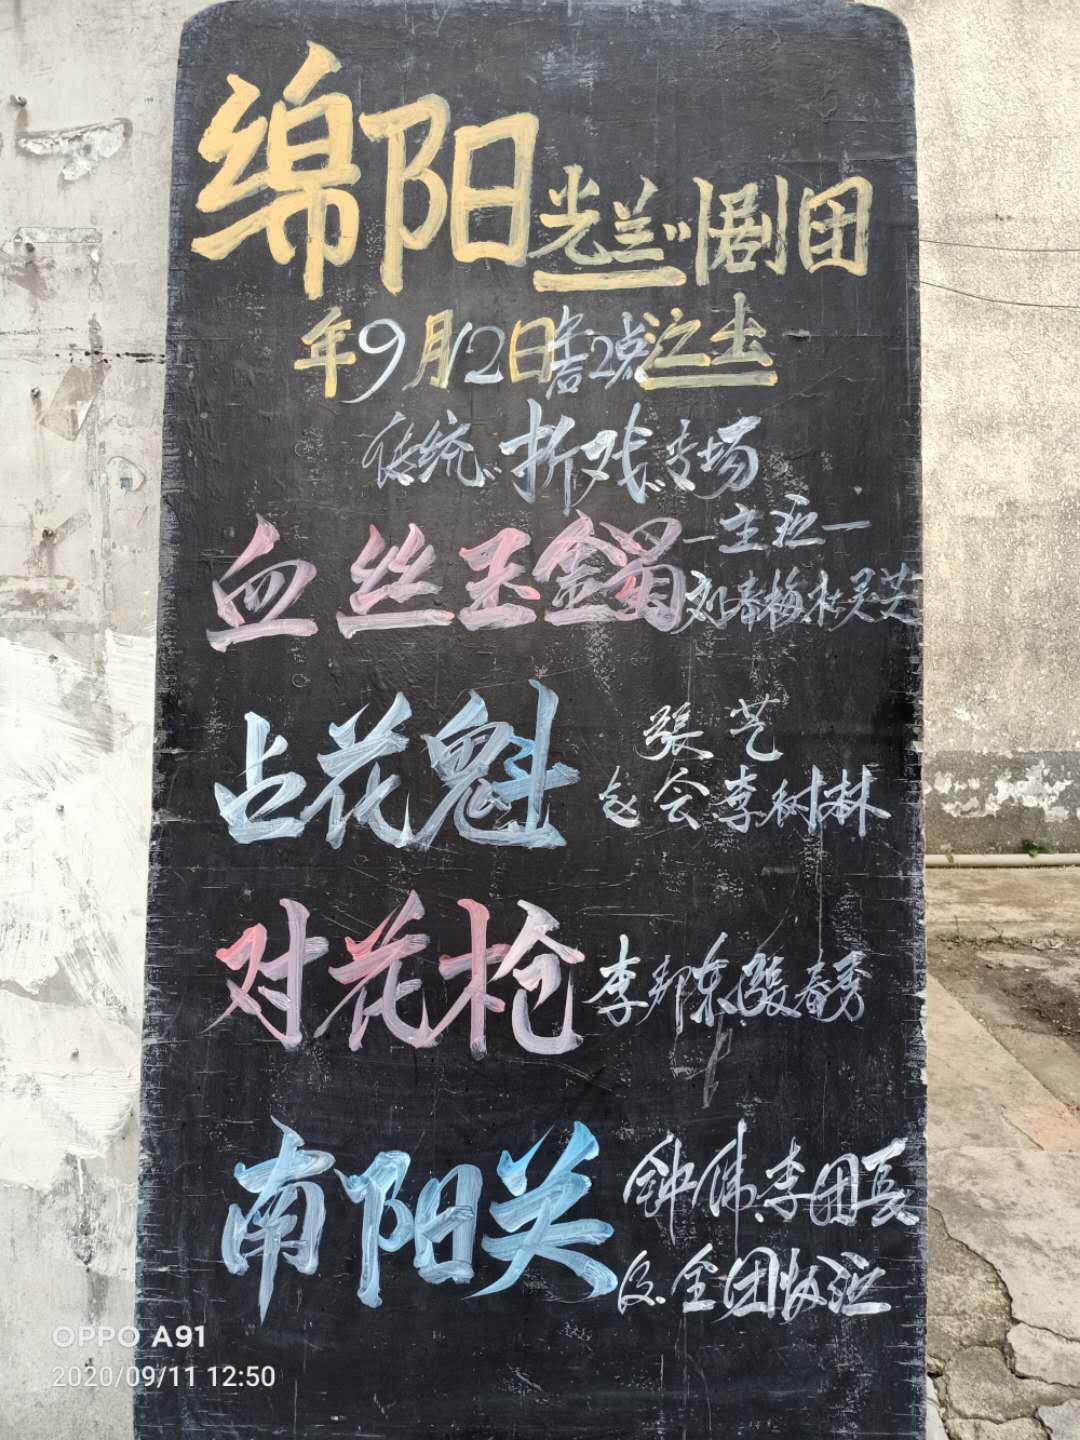 绵阳光兰川剧团
年9月12日午后2点演出
传统折戏专场
血丝玉镯
—主演—
刘春梅 杜灵芝
占花魁
張艺
赵会 李树林
对花枪
李邦东 段春秀
南阳关
钟伟 李团長
及全团协演
OPPO A91
2020/09/11 12:50